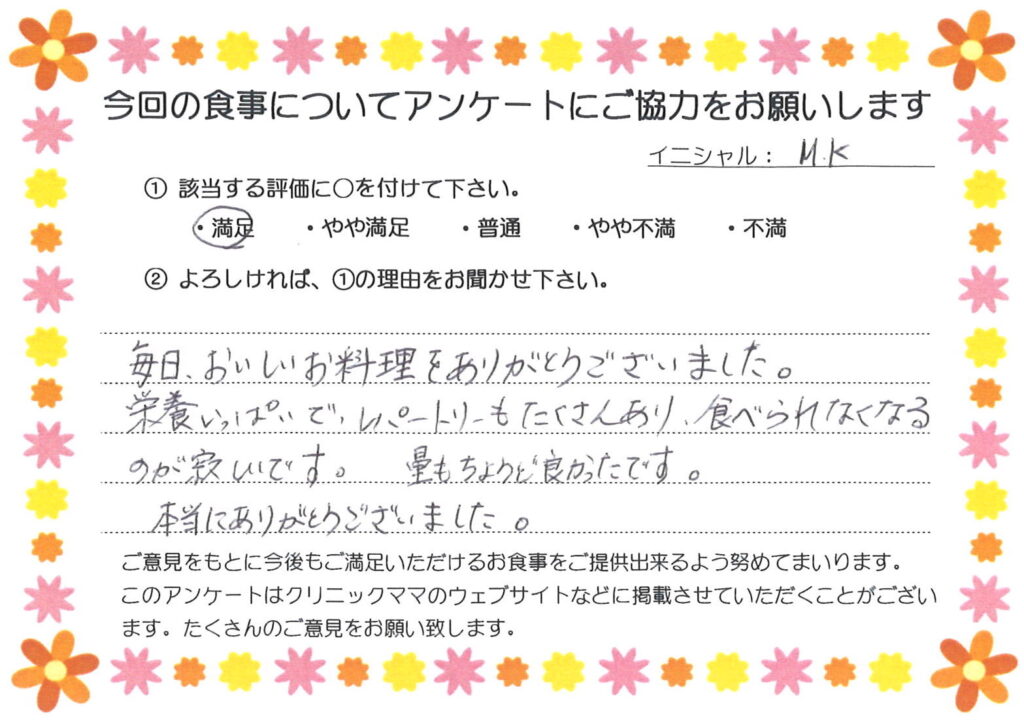 今回の食事についてアンケートにご協力をお願いします
イニシャル： M.K
① 該当する評価に○を付けて下さい。
・満足 ・やや満足 ・普通 ・やや不満 ・不満
② よろしければ、①の理由をお聞かせ下さい。
毎日、おいしいお料理をありがとうございました。
栄養いっぱいで、レパートリーもたくさんあり、食べられなくなる
のが寂しいです。 量もちょうど良かったです。
本当にありがとうございました。
ご意見をもとに今後もご満足いただけるお食事をご提供出来るよう努めてまいります。
このアンケートはクリニックママのウェブサイトなどに掲載させていただくことがござい
ます。たくさんのご意見をお願い致します。